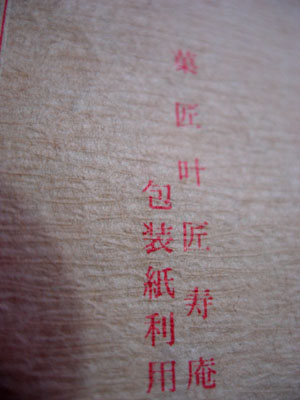 菓匠叶匠寿庵
包装紙利用